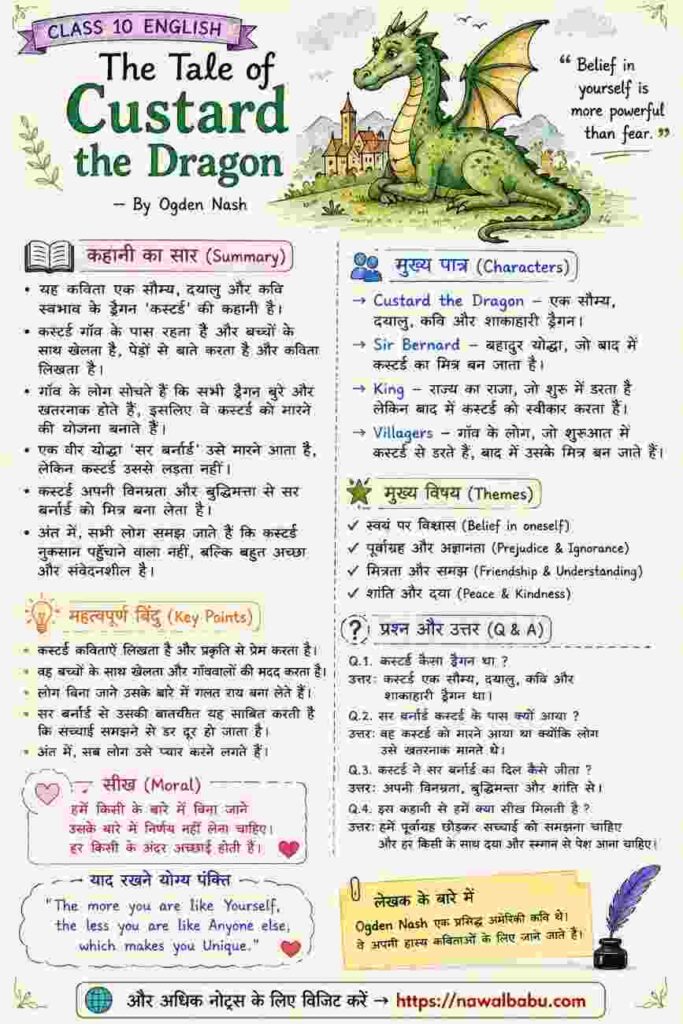 CLASS 10 ENGLISH
The Tale of
Custard
the Dragon
– By Ogden Nash
“ Belief in
yourself is
more powerful
than fear. ”
कहानी का सार (Summary)
• यह कविता एक सौम्य, दयालु और कवि
स्वभाव के ड्रैगन 'कस्टर्ड' की कहानी है।
• कस्टर्ड गाँव के पास रहता है और बच्चों के
साथ खेलता है, पेड़ों से बाते करता है और कविता
लिखता है।
• गाँव के लोग सोचते हैं कि सभी ड्रैगन बुरे और
खतरनाक होते हैं, इसलिए वे कस्टर्ड को मारने
की योजना बनाते हैं।
• एक वीर योद्धा 'सर बर्नार्ड' उसे मारने आता है,
लेकिन कस्टर्ड उससे लड़ता नहीं।
• कस्टर्ड अपनी विनम्रता और बुद्धिमत्ता से सर
बर्नार्ड को मित्र बना लेता है।
• अंत में, सभी लोग समझ जाते हैं कि कस्टर्ड
नुकसान पहुँचाने वाला नहीं, बल्कि बहुत अच्छा
और संवेदनशील है।
महत्वपूर्ण बिंदु (Key Points)
• कस्टर्ड कविताएँ लिखता है और प्रकृति से प्रेम करता है।
• वह बच्चों के साथ खेलता और गाँववालों की मदद करता है।
• लोग बिना जाने उसके बारे में गलत राय बना लेते हैं।
• सर बर्नार्ड से उसकी बातचीत यह साबित करती है
कि सच्चाई समझने से डर दूर हो जाता है।
• अंत में, सब लोग उसे प्यार करने लगते हैं।
सीख (Moral)
हमें किसी के बारे में बिना जाने
उसके बारे में निर्णय नहीं लेना चाहिए।
हर किसी के अंदर अच्छाई होती हैं।
याद रखने योग्य पंक्ति
"The more you are like Yourself,
the less you are like Anyone else,
which makes you Unique."
मुख्य पात्र (Characters)
→ Custard the Dragon – एक सौम्य,
दयालु, कवि और शाकाहारी ड्रैगन।
→ Sir Bernard – बहादुर योद्धा, जो बाद में
कस्टर्ड का मित्र बन जाता है।
→ King – राज्य का राजा, जो शुरू में डरता है
लेकिन बाद में कस्टर्ड को स्वीकार करता हैं।
→ Villagers – गाँव के लोग, जो शुरूआत में
कस्टर्ड से डरते हैं, बाद में उसके मित्र बन जाते हैं।
मुख्य विषय (Themes)
✓ स्वयं पर विश्वास (Belief in oneself)
✓ पूर्वाग्रह और अज्ञानता (Prejudice & Ignorance)
✓ मित्रता और समझ (Friendship & Understanding)
✓ शांति और दया (Peace & Kindness)
? प्रश्न और उत्तर (Q & A)
Q.1. कस्टर्ड कैसा ड्रैगन था ?
उत्तर: कस्टर्ड एक सौम्य, दयालु, कवि और
शाकाहारी ड्रैगन था।
Q.2. सर बर्नार्ड कस्टर्ड के पास क्यों आया ?
उत्तर: वह कस्टर्ड को मारने आया था क्योंकि लोग
उसे खतरनाक मानते थे।
Q.3. कस्टर्ड ने सर बर्नार्ड का दिल कैसे जीता ?
उत्तर: अपनी विनम्रता, बुद्धिमत्ता और शांति से।
Q.4. इस कहानी से हमें क्या सीख मिलती है ?
उत्तर: हमें पूर्वाग्रह छोड़कर सच्चाई को समझना चाहिए
और हर किसी के साथ दया और सम्मान से पेश आना चाहिए।
लेखक के बारे में
Ogden Nash एक प्रसिद्ध अमेरिकी कवि थे।
वे अपनी हास्य कविताओं के लिए जाने जाते हैं।
और अधिक नोट्स के लिए विजिट करें → https://nawalbabu.com